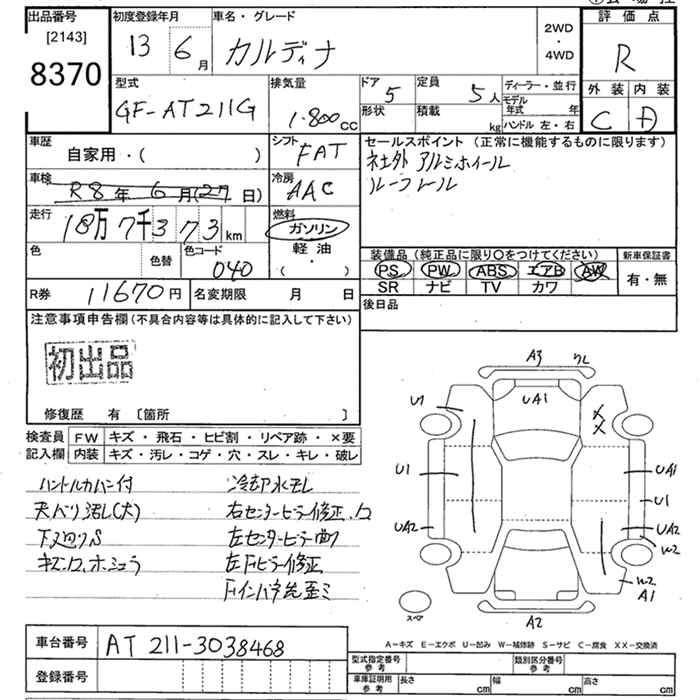 出品番号 [2143] 8370
初度登録年月 13 6月
車名・グレード カルディナ
2WD・4WD
評価点 R
外装 C 内装 D
型式 GF-AT211G
排気量 1.800cc
ドア 5 形状
定員 5人 積載 kg
ディーラー・並行
モデル年式 年
ハンドル 左・右
車歴 自家用・( )
シフト FAT
セールスポイント(正常に機能するものに限ります)
社外 アルミホイール
ルーフレール
車検 R8年 6月(27日)
冷房 AAC
走行 18万7千373km
燃料 ガソリン 軽油・( )
色 色替 色コード 040
装備品(純正品に限り○をつけてください)
PS PW ABS エアB AW
SR ナビ TV カワ
新車保証書 有・無
R券 11670円 名変期限 月 日
後日品
注意事項申告欄(不具合内容等は具体的に記入して下さい)
初出品
修復歴 有 [箇所 ]
検査員記入欄
FW キズ・飛石・ヒビ割・リペア跡・×要
内装 キズ・汚レ・コゲ・穴・スレ・キレ・破レ
ハンドルカバー付
冷却水モレ
天ハリ汚レ(大)
右センターピラー修正
下廻りS
左センターピラー曲り
左Fピラー修正
Fインパネ先歪ミ
A3
UA1
U1
U1
UA1
U1
UA2
UA2
W2
W2
A1
A2
スペア
A-キズ E-エクボ U-凹み W-補修跡 S-サビ C-腐食 XX-交換済
車台番号 AT 211-3038468
登録番号
型式指定番号 参考
類別区分番号 参考
車庫証明用 参考 長さ cm 幅 cm 高さ cm